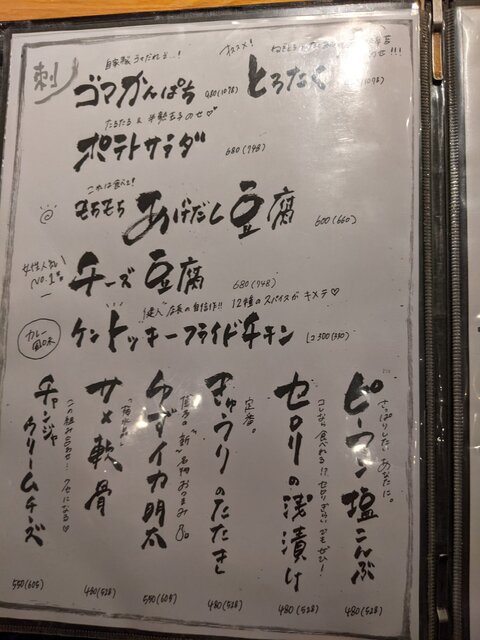 刺
自家製
オススメ!
ゴマかんぱち 980(1078)
とろたく
たるたる & 半熟玉子のせ♡
ポテトサラダ 680(748)
これは食べて!
もちもち あげだし豆腐 600(660)
女性人気 No.1
チーズ豆腐 680(748)
店長の自信作!! 12種のスパイスがキメテ♡
カレー風味
ケントッキーフライドチキン
さっぱりしたいあなたに。
ピーマン塩こんぶ 480(528)
コレなら食べれる!? セロリぎらいでもぜひ!
セロリの浅漬け 480(528)
定番。
きゅうりのたたき 480(528)
ゆずイカ明太 550(605)
サメ軟骨 480(528)
この組み合わせ…クセになる♡
チャンジャクリームチーズ 550(605)